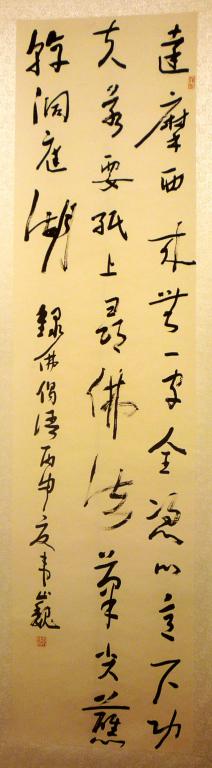 達摩西来無一字全憑心意下功
夫若要紙上尋佛法筆尖蘸
幹洞庭湖 錄佛偈語丙申夏韋巍